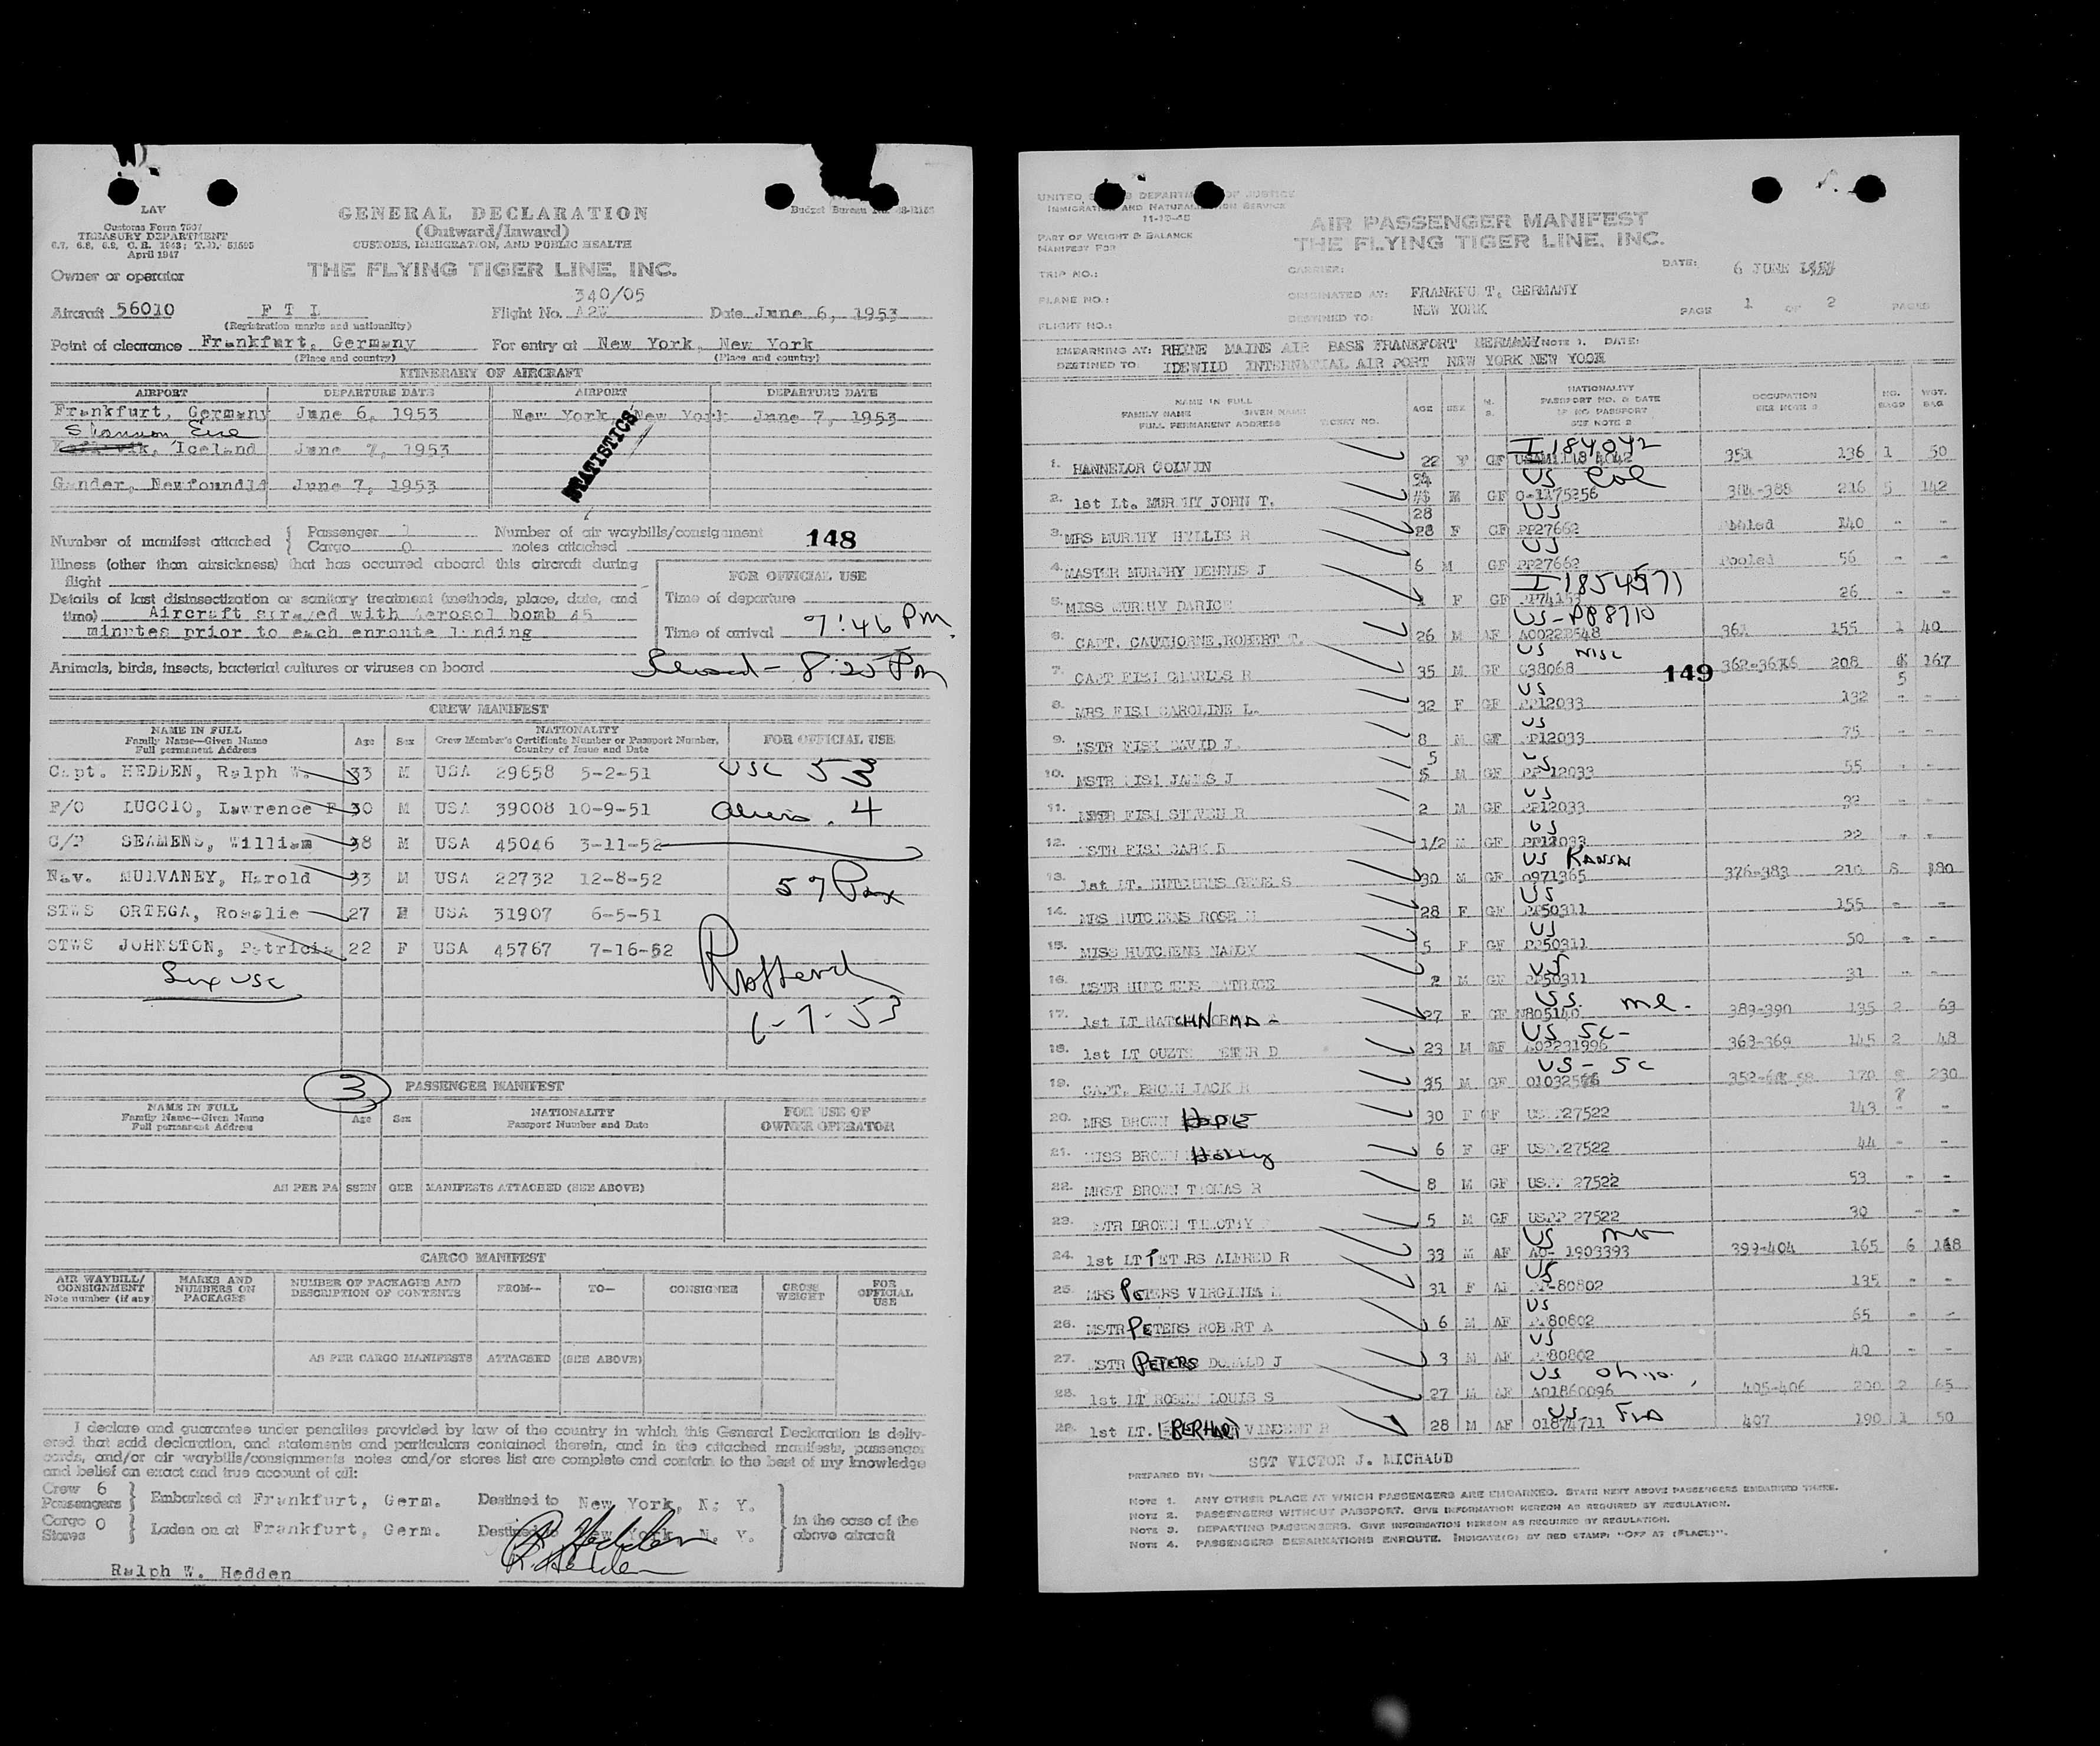 LAV
Customs Form 7507
TREASURY DEPARTMENT
6.7, 6.8, 6.9, C. R. 1943; T.D. 51595
April 1947
Budget Bureau No.
GENERAL DECLARATION
(Outward/Inward)
CUSTOMS, IMMIGRATION, AND PUBLIC HEALTH
THE FLYING TIGER LINE, INC.
Owner or operator
340/05
Aircraft 56010 F T L Flight No. A2W Date June 6, 1953
(Registration marks and nationality)
Point of clearance Frankfurt, Germany For entry at New York, New York
(Place and country) (Place and country)
ITINERARY OF AIRCRAFT
AIRPORT DEPARTURE DATE AIRPORT DEPARTURE DATE
Frankfurt, Germany June 6, 1953 New York, New York June 7, 1953
Shannon Eire
Iceland June 7, 1953
STATISTICS
Gander, Newfoundld June 7, 1953
Number of manifest attached Passenger 1 Number of air waybills/consignment
Cargo 0 notes attached
148
Illness (other than airsickness) that has occurred aboard this aircraft during
flight
FOR OFFICIAL USE
Details of last disinsectization or sanitary treatment (methods, place, date, and
time) Aircraft sprayed with Aerosol bomb 45
minutes prior to each enroute landing
Time of departure
Time of arrival 7:46 PM.
Animals, birds, insects, bacterial cultures or viruses on board
8:25 PM
CREW MANIFEST
NAME IN FULL Age Sex NATIONALITY FOR OFFICIAL USE
Family Name—Given Name Crew Member's Certificate Number or Passport Number,
Full permanent Address Country of Issue and Date
Capt. HEDDEN, Ralph W. 33 M USA 29658 5-2-51 USC 53
F/O LUCCIO, Lawrence P 30 M USA 39008 10-9-51 Aliens. 4
C/P SEAMENS, William 38 M USA 45046 3-11-52
Nav. MULVANEY, Harold 33 M USA 22732 12-8-52 57 Pax
STWS ORTEGA, Rosalie 27 USA 31907 6-5-51
STWS JOHNSTON, Patricia 22 F USA 45767 7-16-52
Six USC
6-7-53
3 PASSENGER MANIFEST
NAME IN FULL Age Sex NATIONALITY FOR USE OF
Family Name—Given Name Passport Number and Date OWNER OPERATOR
Full permanent Address
AS PER PASSENGER MANIFESTS ATTACHED (SEE ABOVE)
CARGO MANIFEST
AIR WAYBILL/ CONSIGNMENT Note number (if any) MARKS AND NUMBERS ON PACKAGES NUMBER OF PACKAGES AND DESCRIPTION OF CONTENTS FROM— TO— CONSIGNEE GROSS WEIGHT FOR OFFICIAL USE
AS PER CARGO MANIFESTS ATTACHED (SEE ABOVE)
I declare and guarantee under penalties provided by law of the country in which this General Declaration is deliv-
ered that said declaration, and statements and particulars contained therein, and in the attached manifests, passenger
cards, and/or air waybills/consignments notes and/or stores list are complete and contain to the best of my knowledge
and belief an exact and true account of all:
Crew 6
Passengers Embarked at Frankfurt, Germ. Destined to New York, N. Y.
Cargo 0
Stores Laden on at Frankfurt, Germ. Destined to New York, N. Y.
in the case of the
above aircraft
R. Hedden
R. Hedden
Ralph W. Hedden
UNITED STATES DEPARTMENT OF JUSTICE
IMMIGRATION AND NATURALIZATION SERVICE
PART OF WEIGHT & BALANCE
MANIFEST FOR
AIR PASSENGER MANIFEST
THE FLYING TIGER LINE, INC.
TRIP NO.: CARRIER: DATE: 6 JUNE
PLANE NO.: ORIGINATED AT: FRANKFU T, GERMANY
FLIGHT NO.: DESTINED TO: NEW YORK PAGE 1 OF 2 PAGES
EMBARKING AT: RHINE MAINE AIR BASE FRANKFORT GERMANY NOTE 1. DATE:
DESTINED TO: IDEWILD INTERNATIAL AIR PORT NEW YORK NEW YOOK
NAME IN FULL AGE SEX M. S. NATIONALITY OCCUPATION NO. BAGS WGT. BAG
FAMILY NAME GIVEN NAME PASSPORT NO. & DATE SEE NOTE 3
FULL PERMANENT ADDRESS TICKET NO. IF NO PASSPORT
SEE NOTE 2
I 184042
1. HANNELOR COLVIN 22 F GF 351 136 1 50
US Col
2. 1st Lt. MURPHY JOHN T. 34 M GF O-1175256 384-388 216 5 142
28 US
3. MRS MURPHY HYLLIS R 28 F GF PP27662 Pooled 140 - -
US
4. MASTER MURPHY DENNIS J 6 M GF PP27662 Pooled 56 - -
5. MISS MURPHY DARICE F GF 26 - -
US-PP8710
6. CAPT. CAUTHORNE, ROBERT T. 26 M AF AO0222548 361 155 1 40
US Wisc
7. CAPT FISH CHARLES R 35 M GF 038068 149 208 5 167
US
8. MRS FISH CAROLINE L. 32 F GF PP12033 132 - -
US
9. MSTR FISH DAVID J. 8 M GF PP12033 75 - -
5 US
10. MSTR FISH JAMES J M GF PP 12033 55 - -
US
11. MSTR FISH STEVEN R 2 M GF PP12033 32 - -
US
12. MSTR FISH 1/2 M GF PP12033 22 - -
US Kansas
13. 1st LT. HUTCHENS GENE S 30 M GF 0971365 376-383 210 8 180
US
14. MRS HUTCHENS ROSE M 28 F GF PP50311 155 - -
US
15. MISS HUTCHENS NANDY 5 F GF PP50311 50 - -
US
16. MSTR HUTCHENS PATRICE 2 M GF PP50311 31 - -
US. Me.
17. 1st LT HATCH NORMA 27 F GF N805140 389-390 135 2 63
US SC-
18. 1st LT OUZTS PETER D 23 M AF AO2231996 368-369 145 2 48
US - SC
19. CAPT. BROWN JACK R 35 M GF 170 230
20. MRS BROWN HOPE 30 F GF USPP27522 143 - -
21. MISS BROWN Holly 6 F GF USPP27522 44 - -
22. MRST BROWN THOMAS R 8 M GF USPP 27522 53 - -
23. MSTR BROWN TIMOTHY 5 M GF USPP 27522 30 - -
US Mo
24. 1st LT PETERS ALFRED R 33 M AF AO- 1903393 399-404 165 6 168
US
25. MRS PETERS VIRGINIA 31 F AF PP-80802 135 - -
US
26. MSTR PETERS ROBERT A 6 M AF PP80802 65 - -
US
27. MSTR PETERS DONALD J 3 M AF PP80802 40 - -
US Ohio.
28. 1st LT ROSEN LOUIS S 27 M AF AO1860096 405-406 200 2 65
US Fla
29. 1st LT. EBERHART VINCENT R 28 M AF 01874711 407 190 1 50
PREPARED BY: SGT VICTOR J. MICHAUD
NOTE 1. ANY OTHER PLACE AT WHICH PASSENGERS ARE EMBARKED. STATE NEXT ABOVE PASSENGERS EMBARKED THERE.
NOTE 2. PASSENGERS WITHOUT PASSPORT. GIVE INFORMATION HEREON AS REQUIRED BY REGULATION.
NOTE 3. DEPARTING PASSENGERS. GIVE INFORMATION HEREON AS REQUIRED BY REGULATION.
NOTE 4. PASSENGERS DEBARKATIONS ENROUTE. INDICATE(D) BY RED STAMP: "OFF AT (PLACE)".